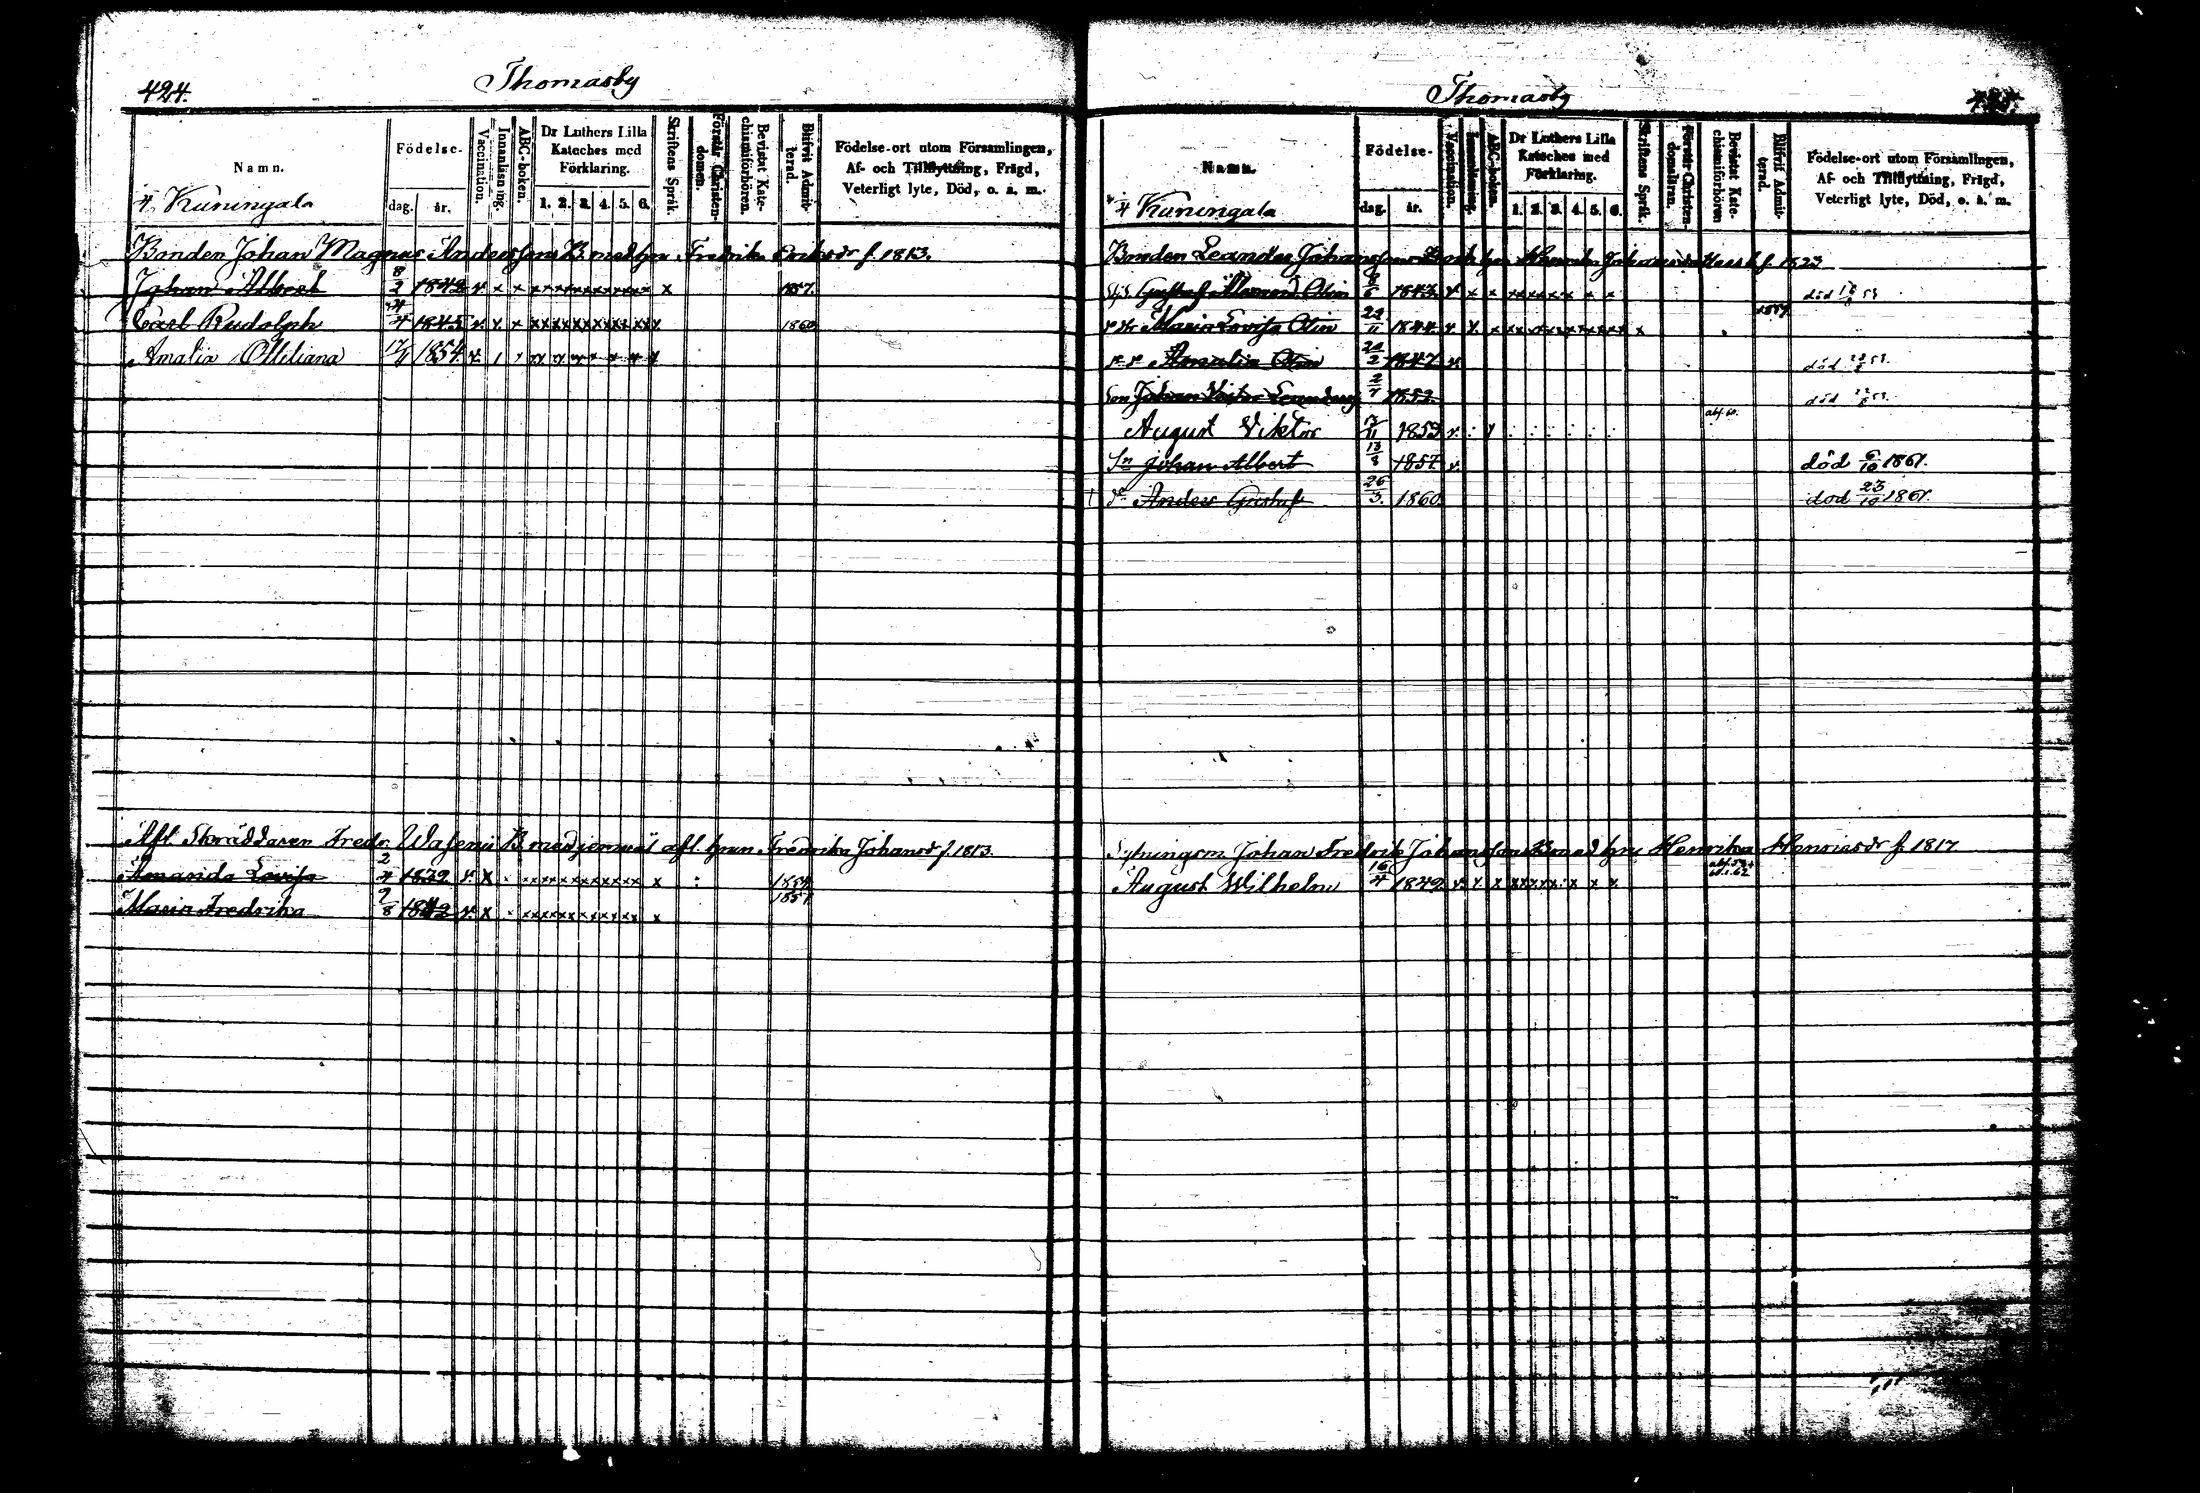 424.
Thomasby
Namn.
Födelse-
dag. år.
Vaccination.
Innanläsning.
ABC-boken.
Dr Luthers Lilla Kateches med Förklaring.
1. 2. 3. 4. 5. 6.
Skriftens Språk.
Förstår Christendomen.
Bevistat Katechismiförhören.
Blifvit Admitterad.
Födelse-ort utom Församlingen,
Af- och Tillflyttning, Frägd,
Veterligt lyte, Död, o. a. m.
4. Kuningala
Bonden Johan Magnus Anderssons B. med hu Fredrika Eriksdr f. 1813.
Johan Albert 8/2 1842 v x x x x x x x x x x 1857.
Carl Rudolph 24/4 1845 v. x x x x x x x x x 1860
Amalia Ottiliana 17/1 1854 v.
Afl. Skräddaren Fredr. Wasenii B. med jemväl afl. hrun Fredrika Johansdr f. 1813.
Amanda Lovisa 2/4 1839 v. x 1854
Maria Fredrika 2/8 1842 v. x 1857
Thomasby
425.
Namn.
Födelse-
dag. år.
Vaccination.
Innanläsning.
ABC-boken.
Dr Luthers Lilla Kateches med Förklaring.
1. 2. 3. 4. 5. 6.
Skriftens Språk.
Förstår Christendomsläran.
Bevistat Katechismiförhören
Blifvit Admitterad.
Födelse-ort utom Församlingen,
Af- och Tillflyttning, Frägd,
Veterligt lyte, Död, o. a. m.
4 Kuningala
Bonden Leander Johanssons f. 1823
Gustaf Otin 8/6 1843 v x x död
Maria Lovisa Otin 22/11 1844 v x x 1859
Amalia Otin 20/2 1847 v. död
Son Johan Victor 2/7 1852 död
August Viktor 17/11 1853 v. abf. 60.
Sn Johan Albert 13/8 1857 v. död 6/10 1861.
dn Anders Gustaf 26/3 1860 död 23/10 1861.
Sytningsm Johan Fredrik Johanssons B med hu Henrika Henricsdr f. 1817
August Wilhelm 16/4 1849 v. x x